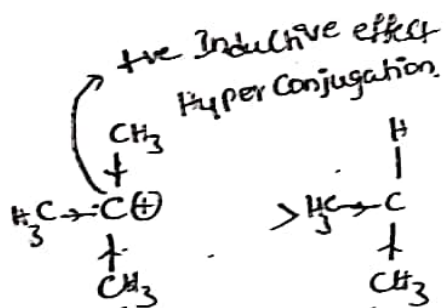 +ve Inductive effect
Hyper Conjugation.
CH3 H
H3C→C⊕ > H3C→C
CH3 CH3